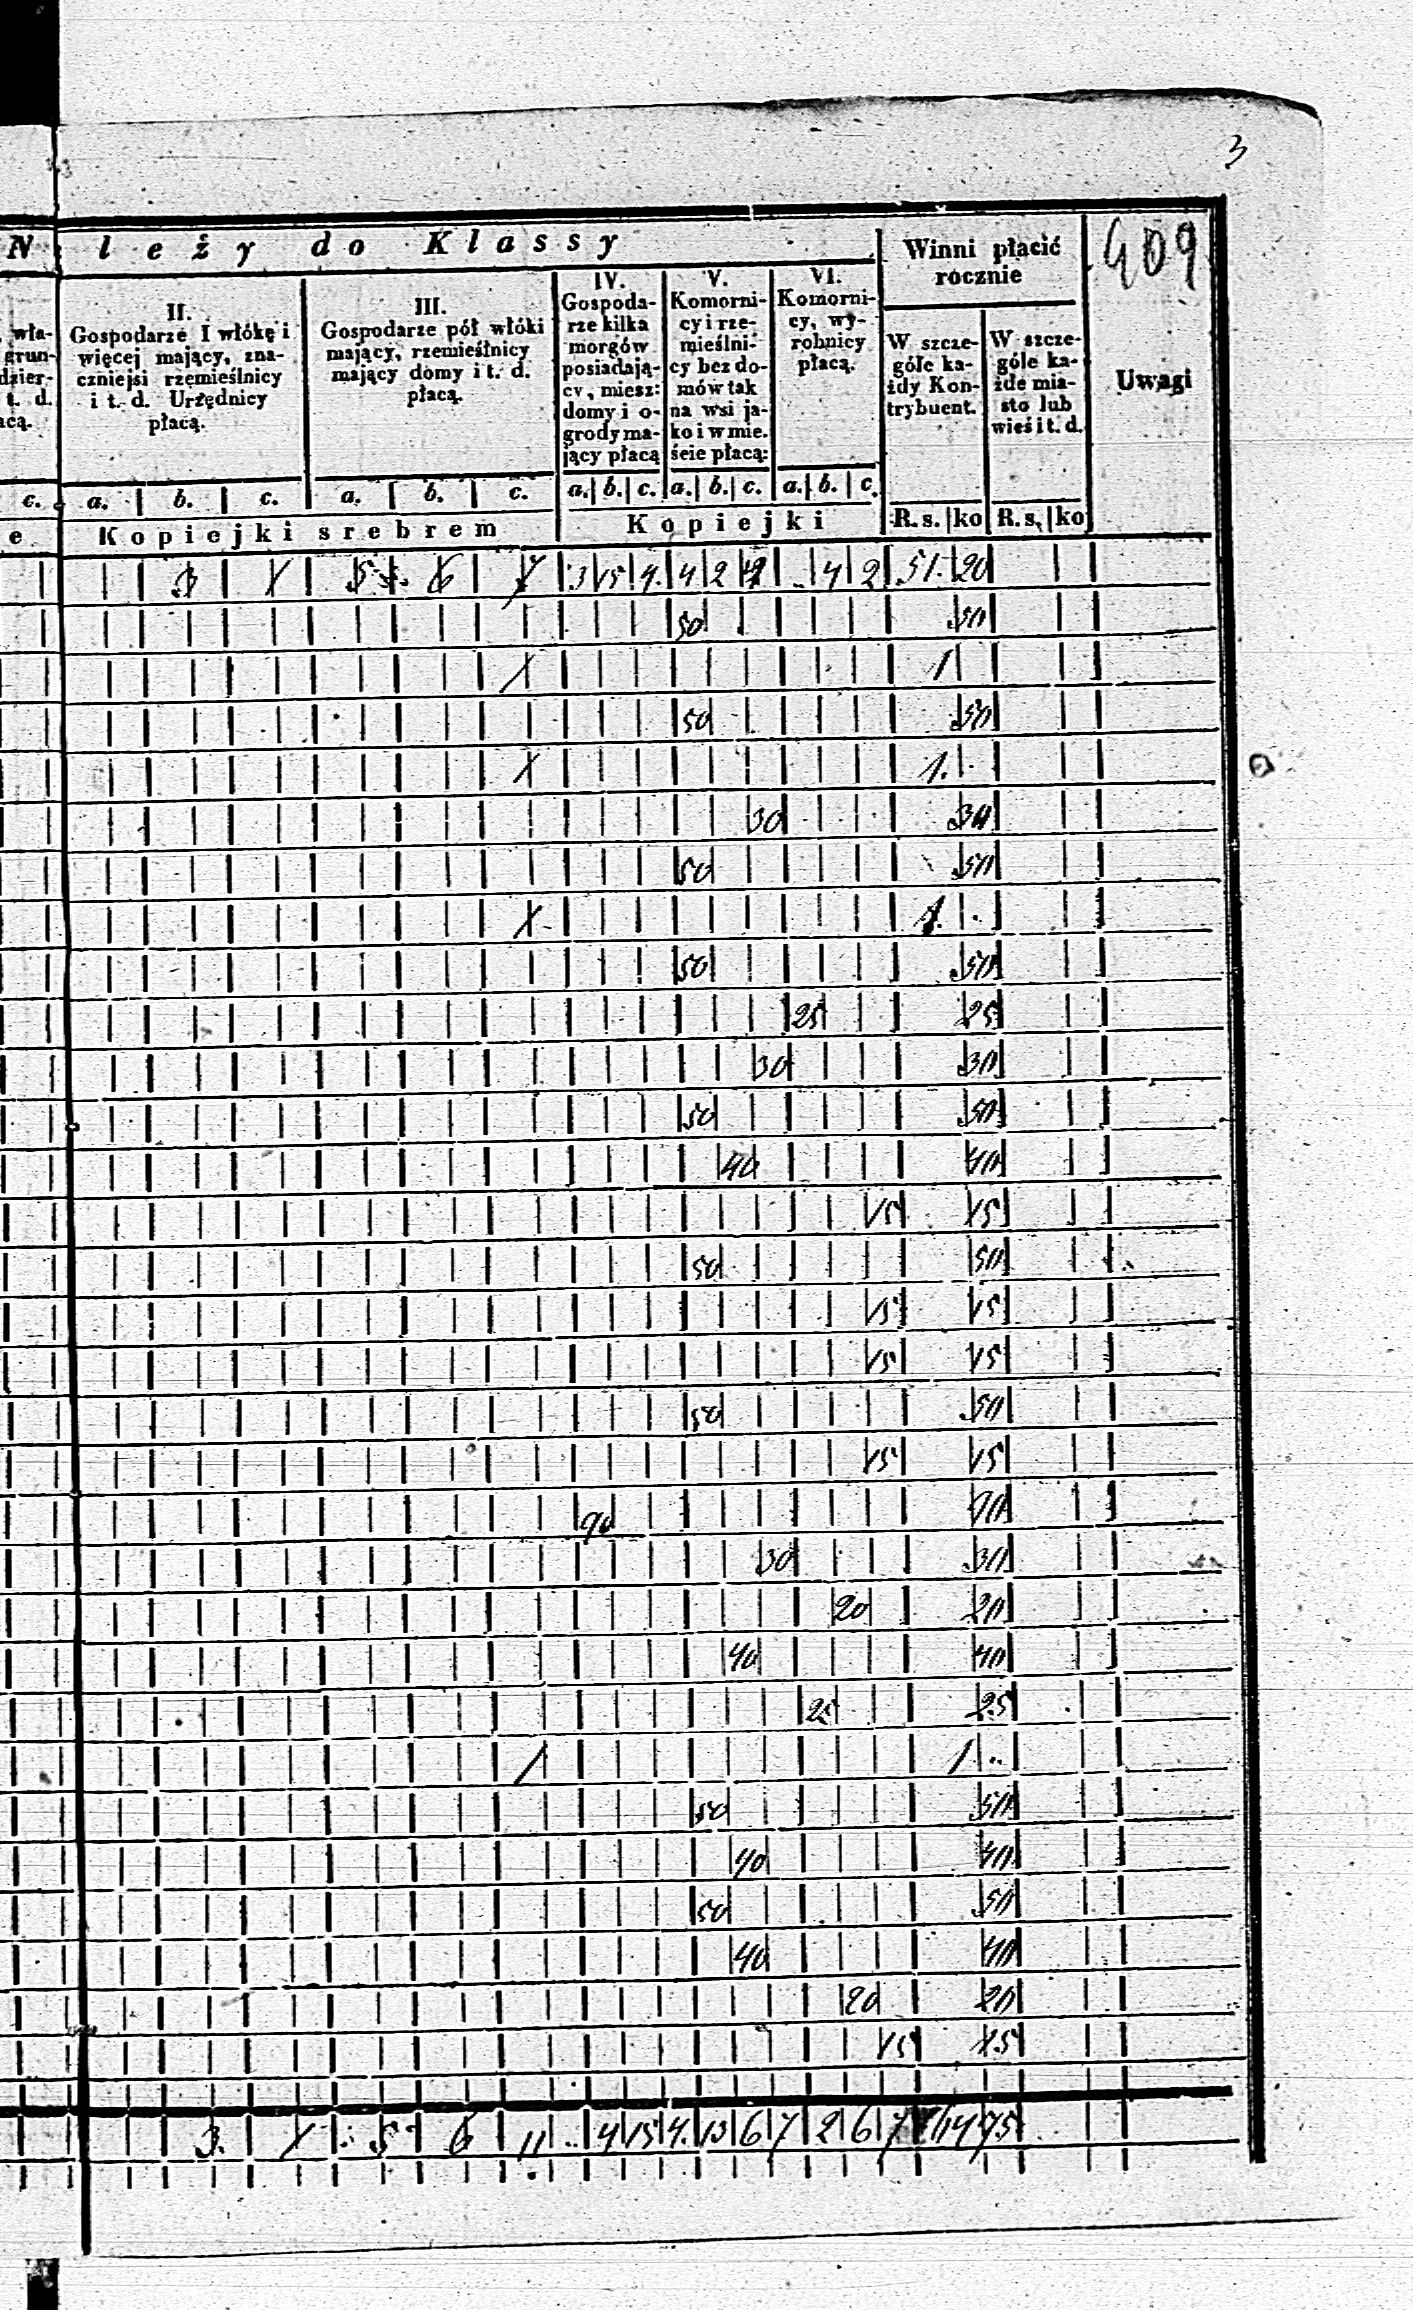 3
N leży do Klassy
Winni płacić
rocznie
409
wła-
grun-
dzier-
t. d.
acą.
II.
Gospodarze I włókę i
więcej mający, zna-
czniejsi rzemieślnicy
i t. d. Urzędnicy
płacą.
III.
Gospodarze pół włóki
mający, rzemieślnicy
mający domy i t. d.
płacą.
IV.
Gospoda-
rze kilka
morgów
posiadają-
cy, miesz:
domy i o-
grody ma-
jący płacą
V.
Komorni-
cy i rze-
mieślni-
cy bez do-
mów tak
na wsi ja-
ko i w mie.
ście płacą:
VI.
Komorni-
cy, wy-
robnicy
płacą.
W szcze-
góle ka-
żdy Kon-
trybuent.
W szcze-
góle ka-
żde mia-
sto lub
wieś i t. d.
Uwagi
c. a. b. c. a. b. c. a. b. c. a. b. c. a. b. c.
e Kopiejki srebrem Kopiejki R. s. ko R. s. ko
3 1 5 6 7 3 15 4 4 2 4 2 51. 20
50 50
1 1
50 50
1 1.
30 30
50 50
1 1.
50 50
25 25
30 30
50 50
40 40
15 15
50 50
15 15
15 15
50 50
15 15
90 90
30 30
20 20
40 40
25 25
1 1
50 50
40 40
50 50
40 40
20 20
15 15
3. 1 5 6 11 4 15 4. 13 6 7 2 6 7 75